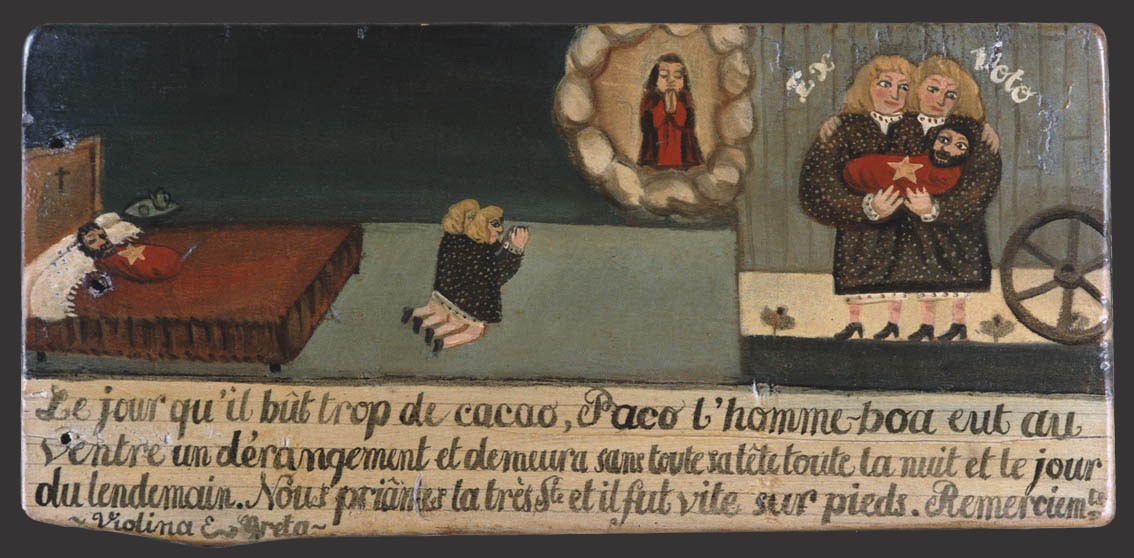 Ex Voto
Le jour qu'il bût trop de cacao, Paco l'homme-boa eut au
ventre un dérangement et demeura sans toute sa tête toute la nuit et le jour
du lendemain. Nous priâmes la très Ste et il fut vite sur pieds. Remerciemts
~ Violina & Greta ~